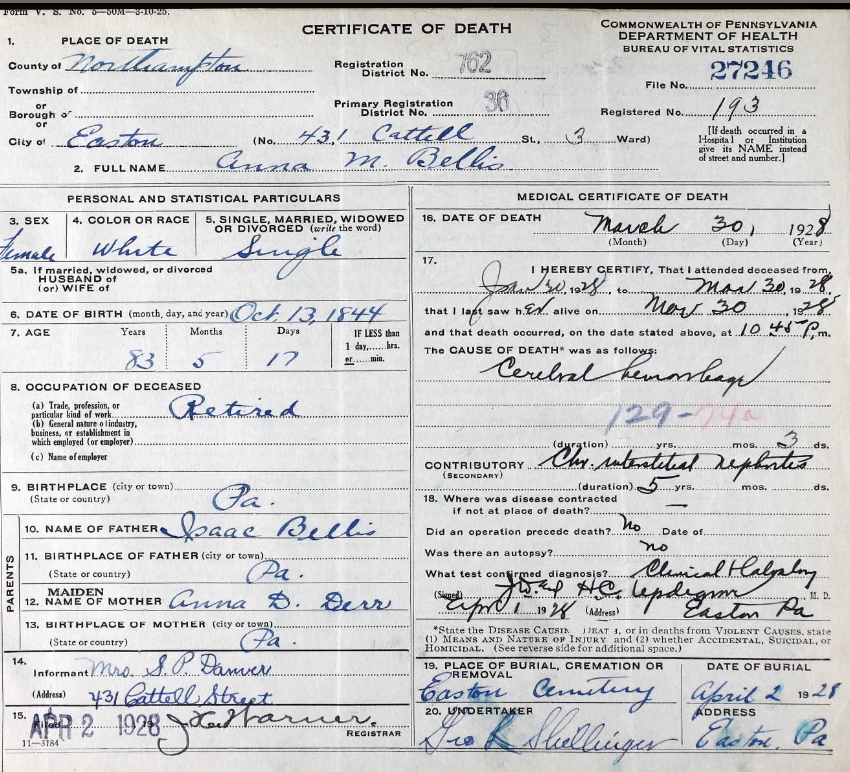 Form V. S. No. 5—50M—3-10-25.
CERTIFICATE OF DEATH
COMMONWEALTH OF PENNSYLVANIA
DEPARTMENT OF HEALTH
BUREAU OF VITAL STATISTICS
1. PLACE OF DEATH
County of Northampton
Registration District No. 762
File No. 27246
Township of
or
Borough of
or
Primary Registration District No. 36
Registered No. 193
City of Easton (No. 431 Cattell St., 3 Ward)
[If death occurred in a Hospital or Institution give its NAME instead of street and number.]
2. FULL NAME Anna M. Bellis
PERSONAL AND STATISTICAL PARTICULARS
3. SEX Female
4. COLOR OR RACE White
5. SINGLE, MARRIED, WIDOWED OR DIVORCED (write the word) Single
5a. If married, widowed, or divorced
HUSBAND of
(or) WIFE of
6. DATE OF BIRTH (month, day, and year) Oct. 13, 1844
7. AGE Years Months Days IF LESS than
1 day,......hrs.
or......min.
83 5 17
8. OCCUPATION OF DECEASED
(a) Trade, profession, or particular kind of work Retired
(b) General nature of industry, business, or establishment in which employed (or employer)
(c) Name of employer
9. BIRTHPLACE (city or town)
(State or country) Pa.
PARENTS
10. NAME OF FATHER Isaac Bellis
11. BIRTHPLACE OF FATHER (city or town)
(State or country) Pa.
12. MAIDEN NAME OF MOTHER Anna D. Derr
13. BIRTHPLACE OF MOTHER (city or town)
(State or country) Pa.
14.
Informant Mrs. S. P.
(Address) 431 Cattell Street
15. Filed APR 2 1928 Warner.
REGISTRAR
11—3184
MEDICAL CERTIFICATE OF DEATH
16. DATE OF DEATH March 30, 1928
(Month) (Day) (Year)
17. I HEREBY CERTIFY, That I attended deceased from
Jan 30, 1928, to Mar 30, 1928,
that I last saw her alive on Mar 30, 1928
and that death occurred, on the date stated above, at 10 45 P. m.
The CAUSE OF DEATH* was as follows:
Cerebral hemorrhage
129-74a
(duration) yrs. mos. 3 ds.
CONTRIBUTORY Chr. interstitial nephritis
(SECONDARY)
(duration) 5 yrs. mos. ds.
18. Where was disease contracted
if not at place of death? —
Did an operation precede death? no Date of
Was there an autopsy? no
What test confirmed diagnosis? Clinical
(Signed) H.C. Updegrove M. D.
Apr 1 1928 (Address) Easton Pa
*State the DISEASE CAUSING DEATH, or in deaths from VIOLENT CAUSES, state
(1) MEANS AND NATURE OF INJURY and (2) whether ACCIDENTAL, SUICIDAL, or
HOMICIDAL. (See reverse side for additional space.)
19. PLACE OF BURIAL, CREMATION OR REMOVAL
Easton Cemetery
DATE OF BURIAL
April 2 1928
20. UNDERTAKER
Geo R Shellinger
ADDRESS
Easton, Pa